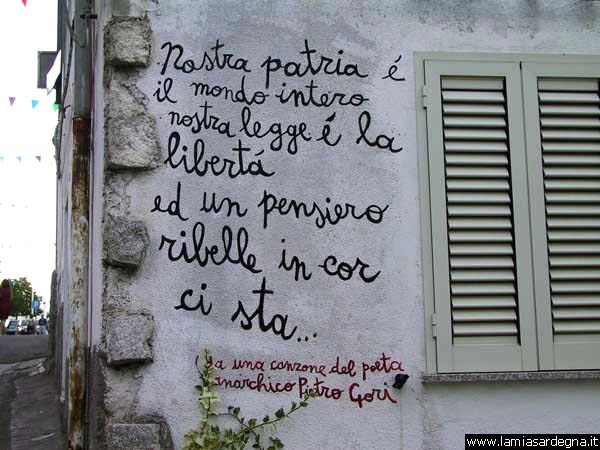 Nostra patria é
il mondo intero
nostra legge é la
libertá
ed un pensiero
ribelle in cor
ci sta...
da una canzone del poeta
anarchico Pietro Gori
www.lamiasardegna.it